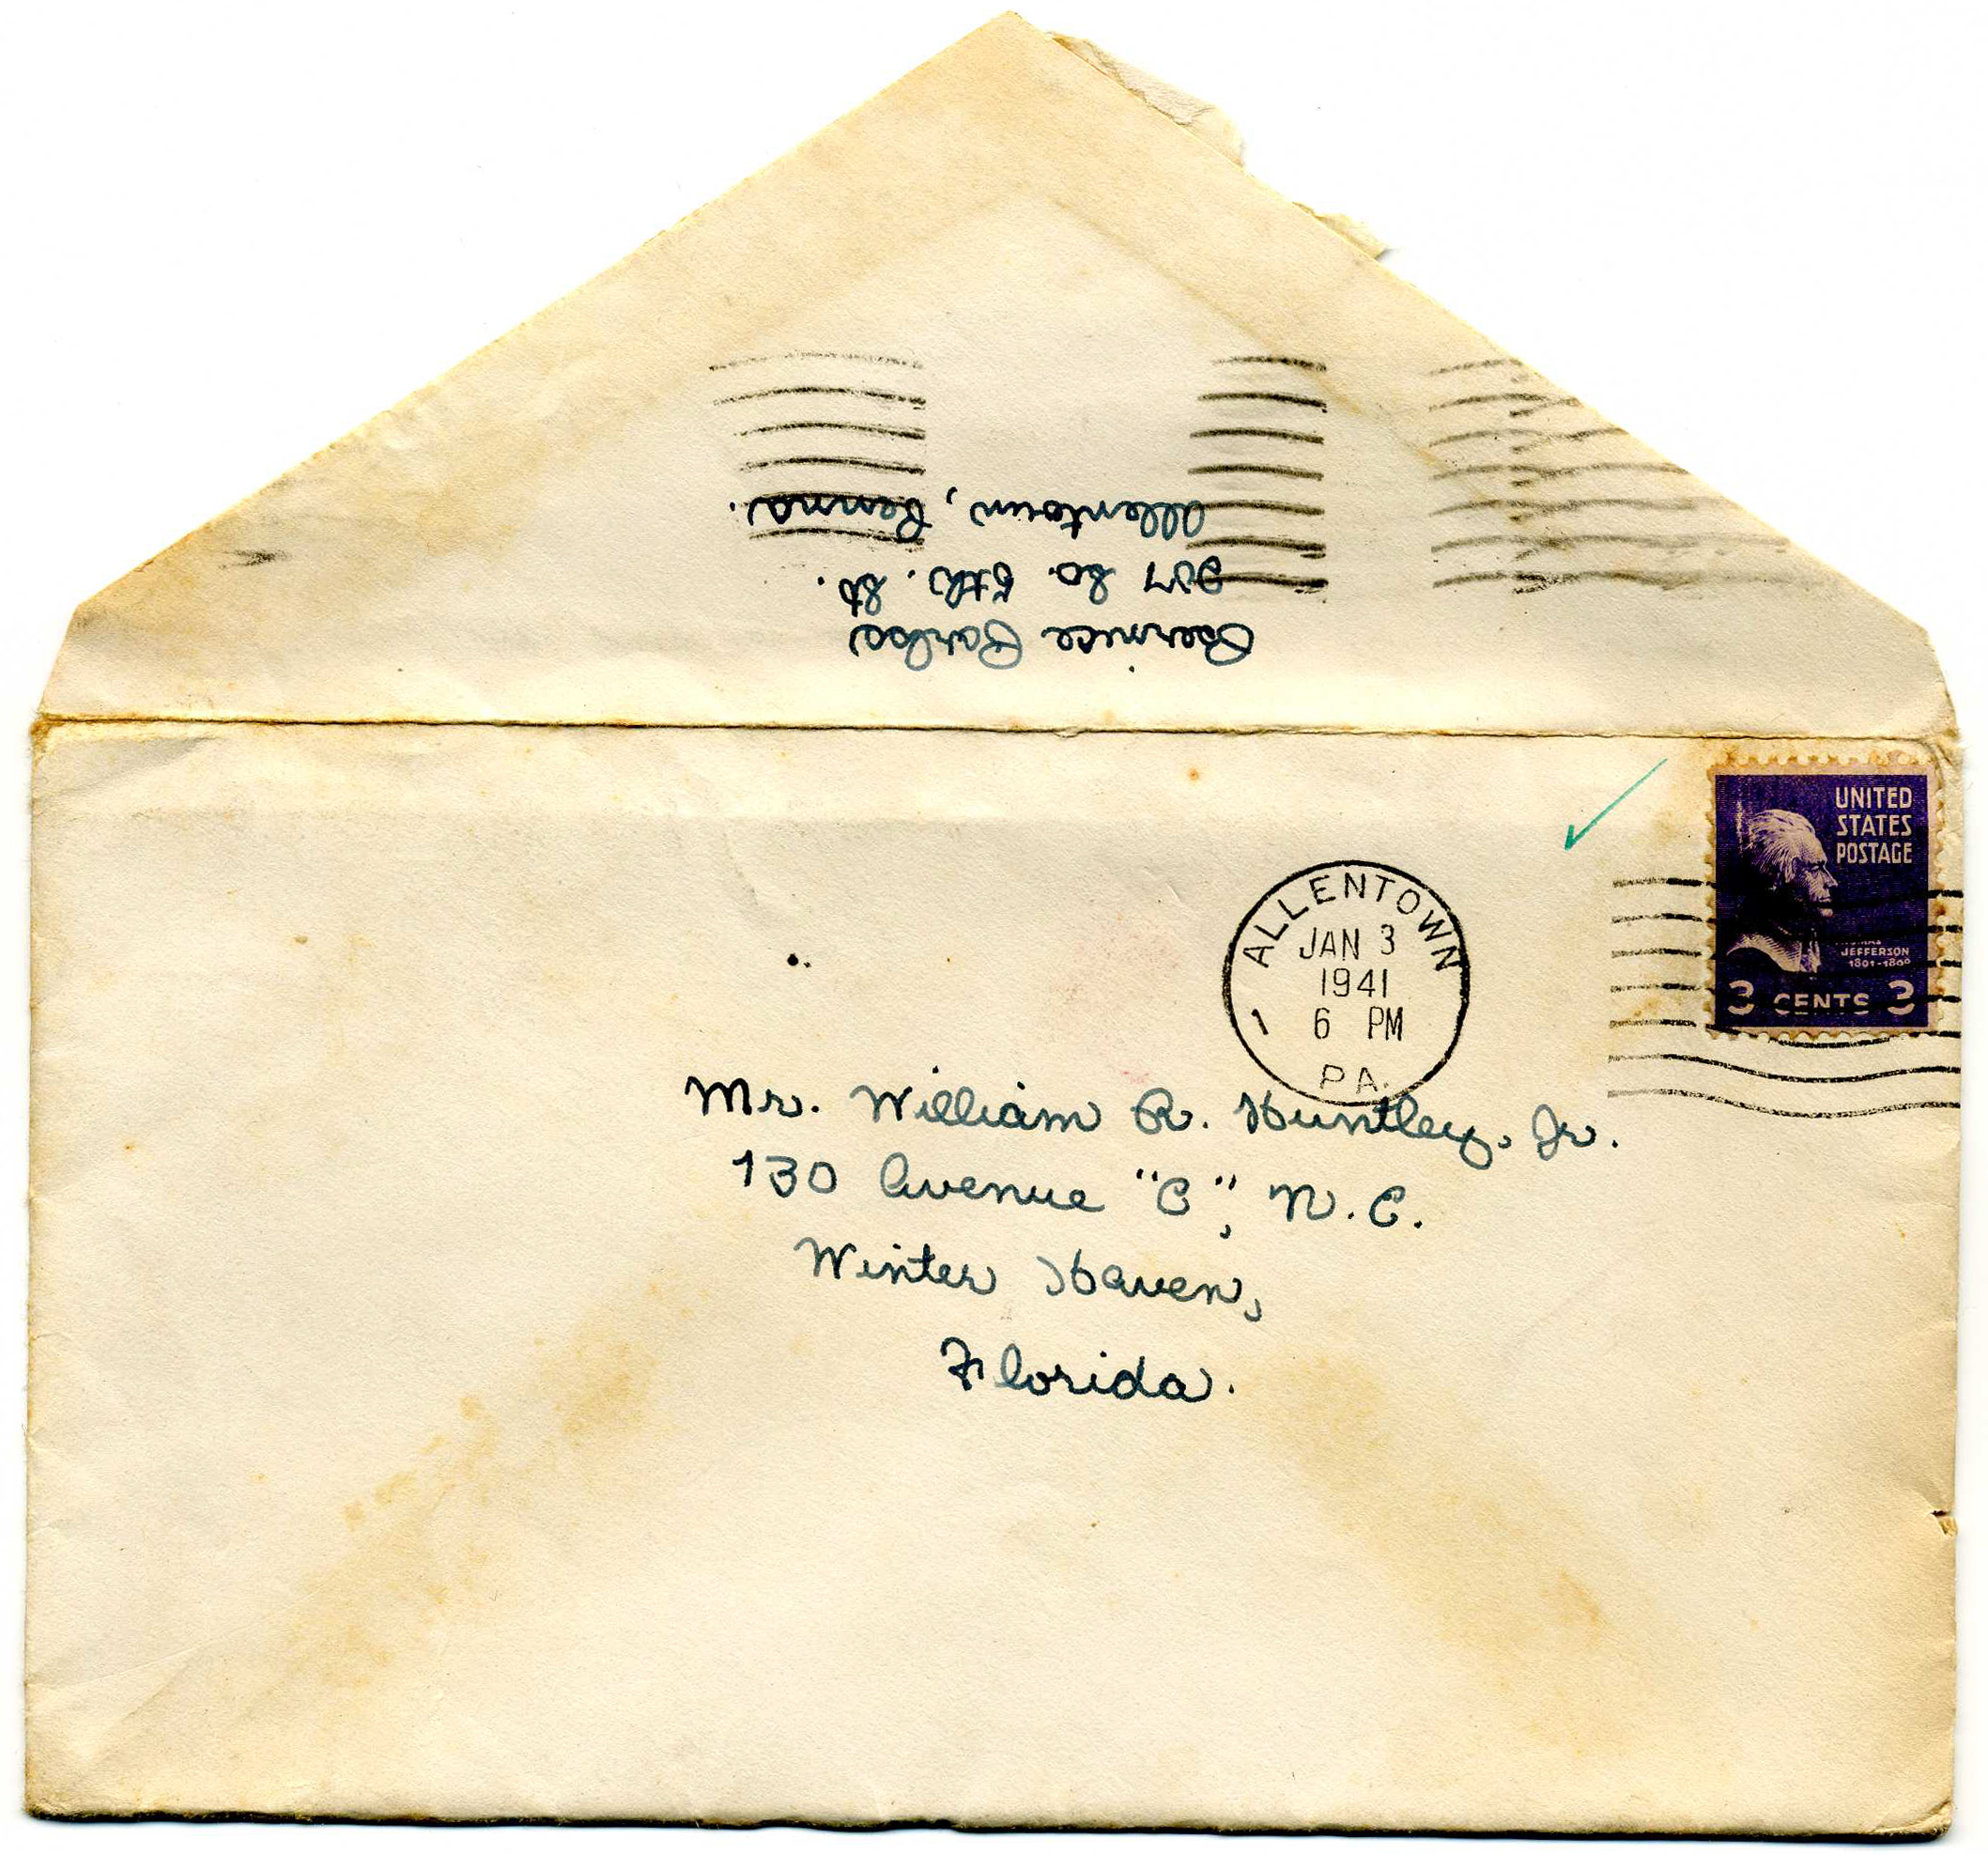 Bernice
So. 5th. St.
Allentown, Penna.
UNITED
STATES
POSTAGE
THOMAS
JEFFERSON
1801-1809
3 CENTS 3
ALLENTOWN
JAN 3
1941
1 6 PM
PA.
Mr. William R. Huntley, Jr.
130 Avenue "B", N.E.
Winter Haven,
Florida.